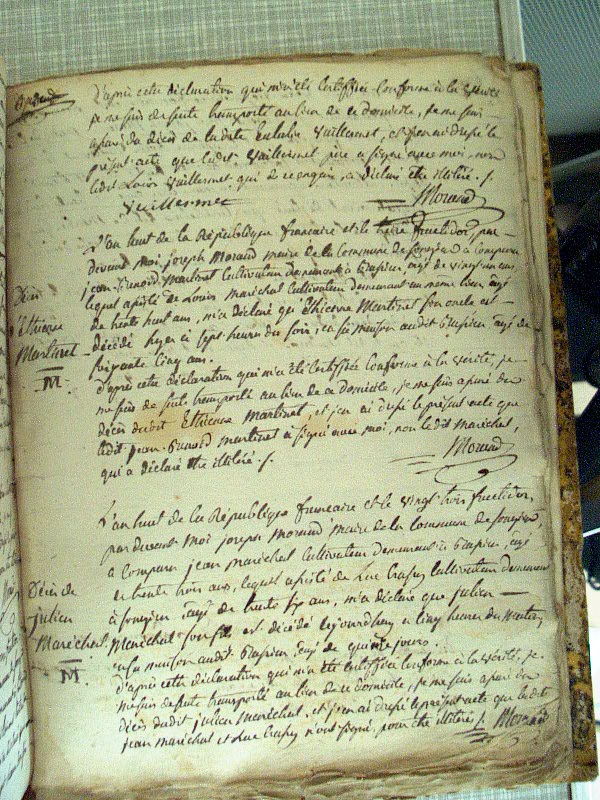 D'après cette déclaration qui m'a été certifiée conforme à la vérité
je me suis de suite transporté au lieu de ce domicile, je me suis
assuré du décès de ladite Vuillermet, et j'en ai dressé le
présent acte que ledit Vuillermet père a signé avec moi, non
ledit Louis Vuillermet qui de ce enquis a déclaré être illitéré ./.
Vuillermet
Morand
L'an huit de la République française et le treize fructidor, par
devant moi joseph Morand maire de la Commune de a Comparu
jean Martinet Cultivateur demeurant à agé de vingt
lequel assisté de Louis Maréchal Cultivateur demeurant au même lieu, agé
de trente huit ans, m'a déclaré que Ethienne Martinet son oncle est
décédé hyer à sept heures du soir, en sa maison audit agé de
soixante Cinq ans.
Décès
d'Ethienne
Martinet
M.
d'après cette déclaration qui m'a été Certifiée Conforme à la vérité, je
me suis de suite transporté au lieu de ce domicile, je me suis assuré du
décès dudit Ethienne Martinet, et j'en ai dressé le présent acte que
ledit jean martinet a signé avec moi, non ledit maréchal,
qui a déclaré être illitéré ./.
Morand
L'an huit de la République française et le vingt trois fructidor,
par devant moi joseph Morand maire de la Commune de
a Comparu jean maréchal Cultivateur demeurant à agé
de trente trois ans, lequel assisté de Luc Cultivateur demeurant
à agé de trente six ans, m'a déclaré que julien
Maréchal son fils est décédé cejourdhuy à Cinq heures du matin,
en sa maison audit agé de quinze jours.
Décès de
julien
Maréchal
M.
d'après cette déclaration qui m'a été Certifiée Conforme à la vérité, je
me suis de suite transporté au lieu de ce domicile, je me suis assuré du
décès dudit julien Maréchal, et j'en ai dressé le présent acte que ledit
jean maréchal et Luc n'ont signé, pour être illitérés ./. Morand